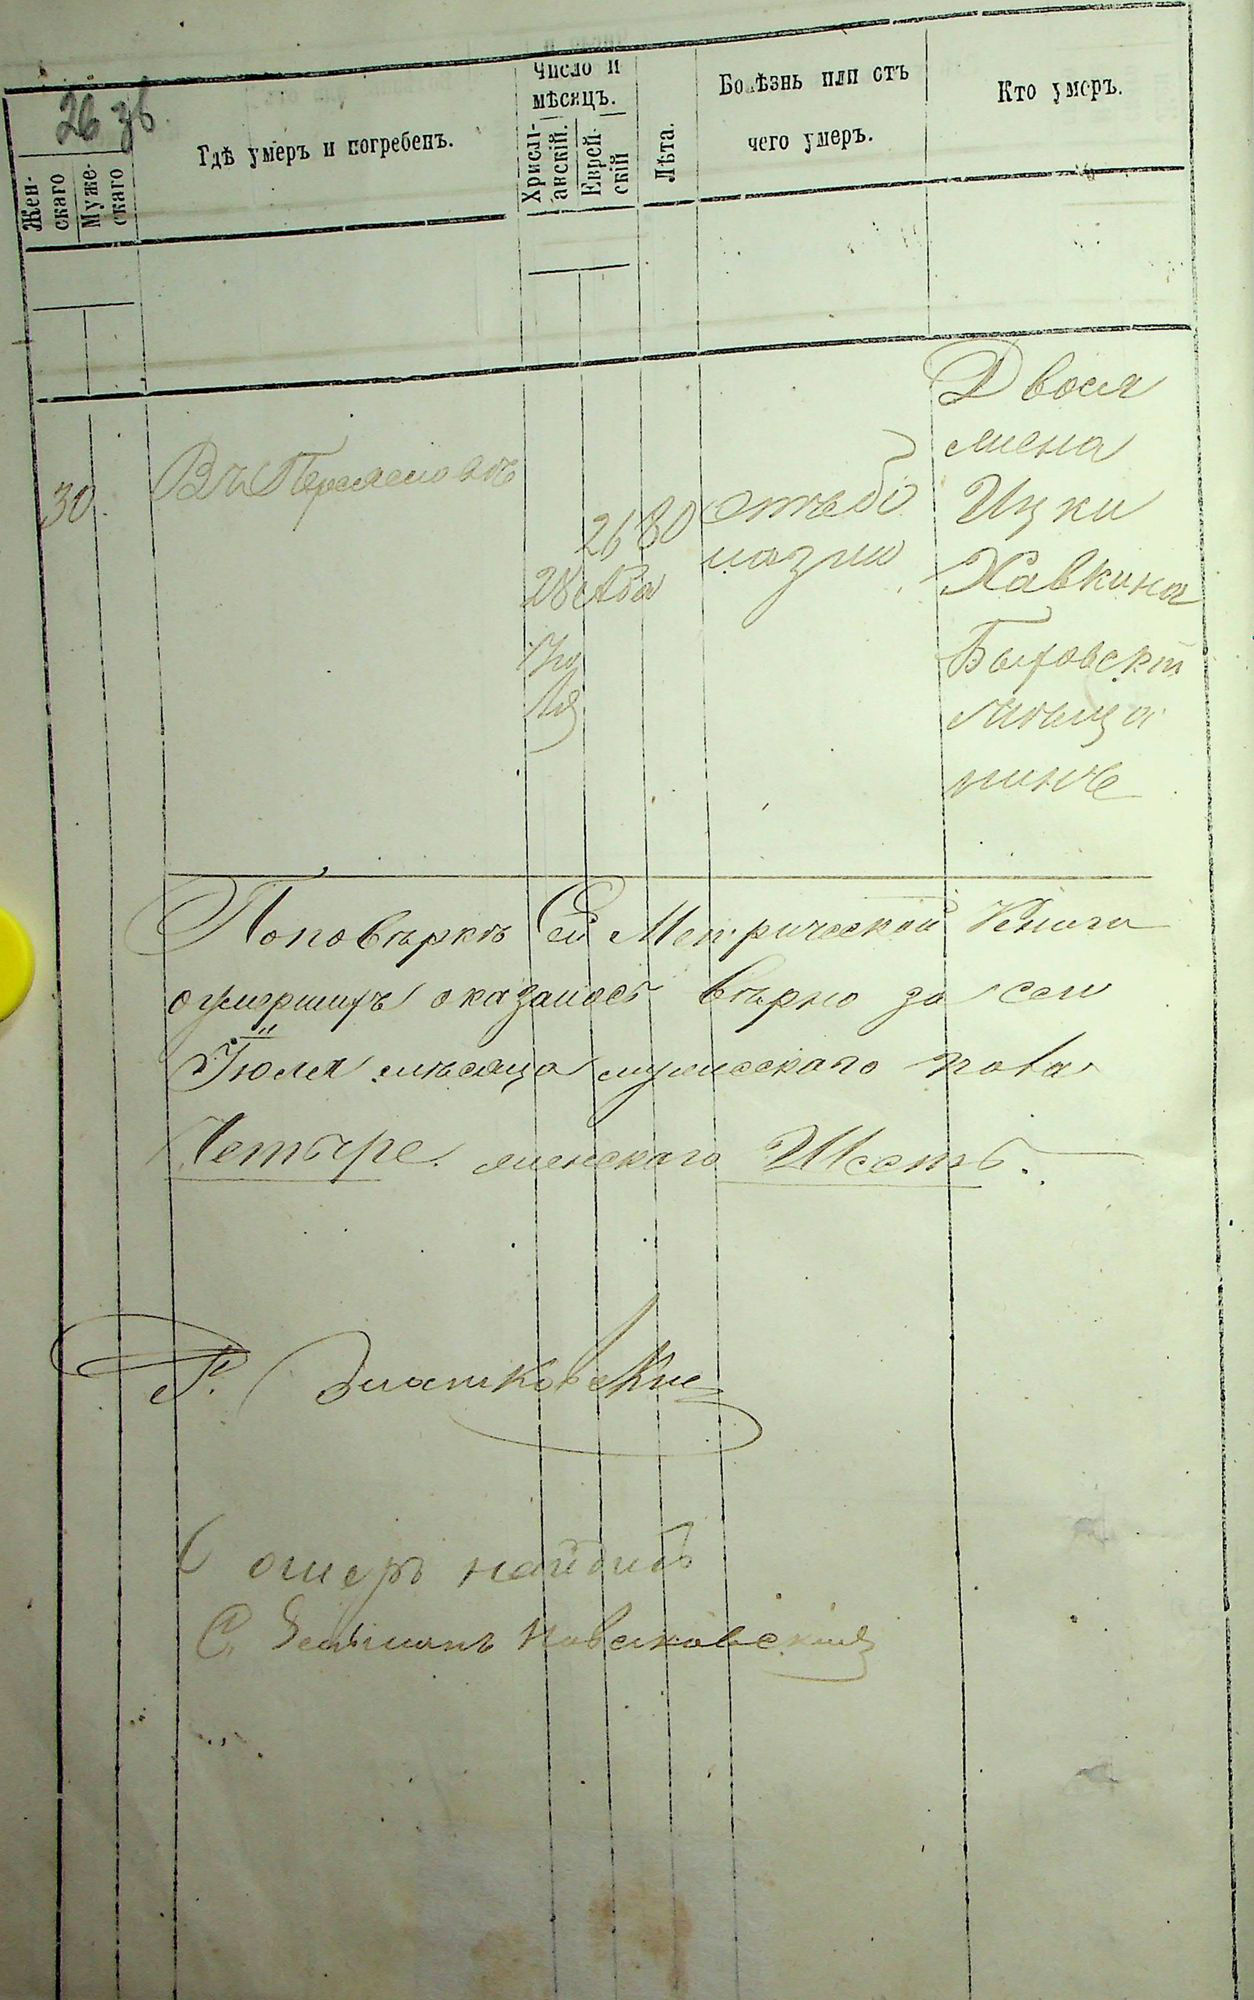 26 зв.
Жен-
скаго
Муже-
скаго
Гдѣ умеръ и погребенъ.
Число и
мѣсяцъ.
Христі-
анскій.
Еврей-
скій
Лѣта.
Болѣзнь или отъ
чего умеръ.
Кто умеръ.
30.
Въ Переяславѣ
28
Ію
ля
26
Ава
80
отъ бо
лѣзни
Двося
жена
Ицки
Хавкина
Быховскій
мѣща
нинъ
По повѣркѣ Сей Метрической Книги
о умершихъ оказалось вѣрно за сей
Іюля мѣсяца мужескаго пола
Четыре женскаго Шесть.
Р. Златковскій
С Зельманъ Новаковскій